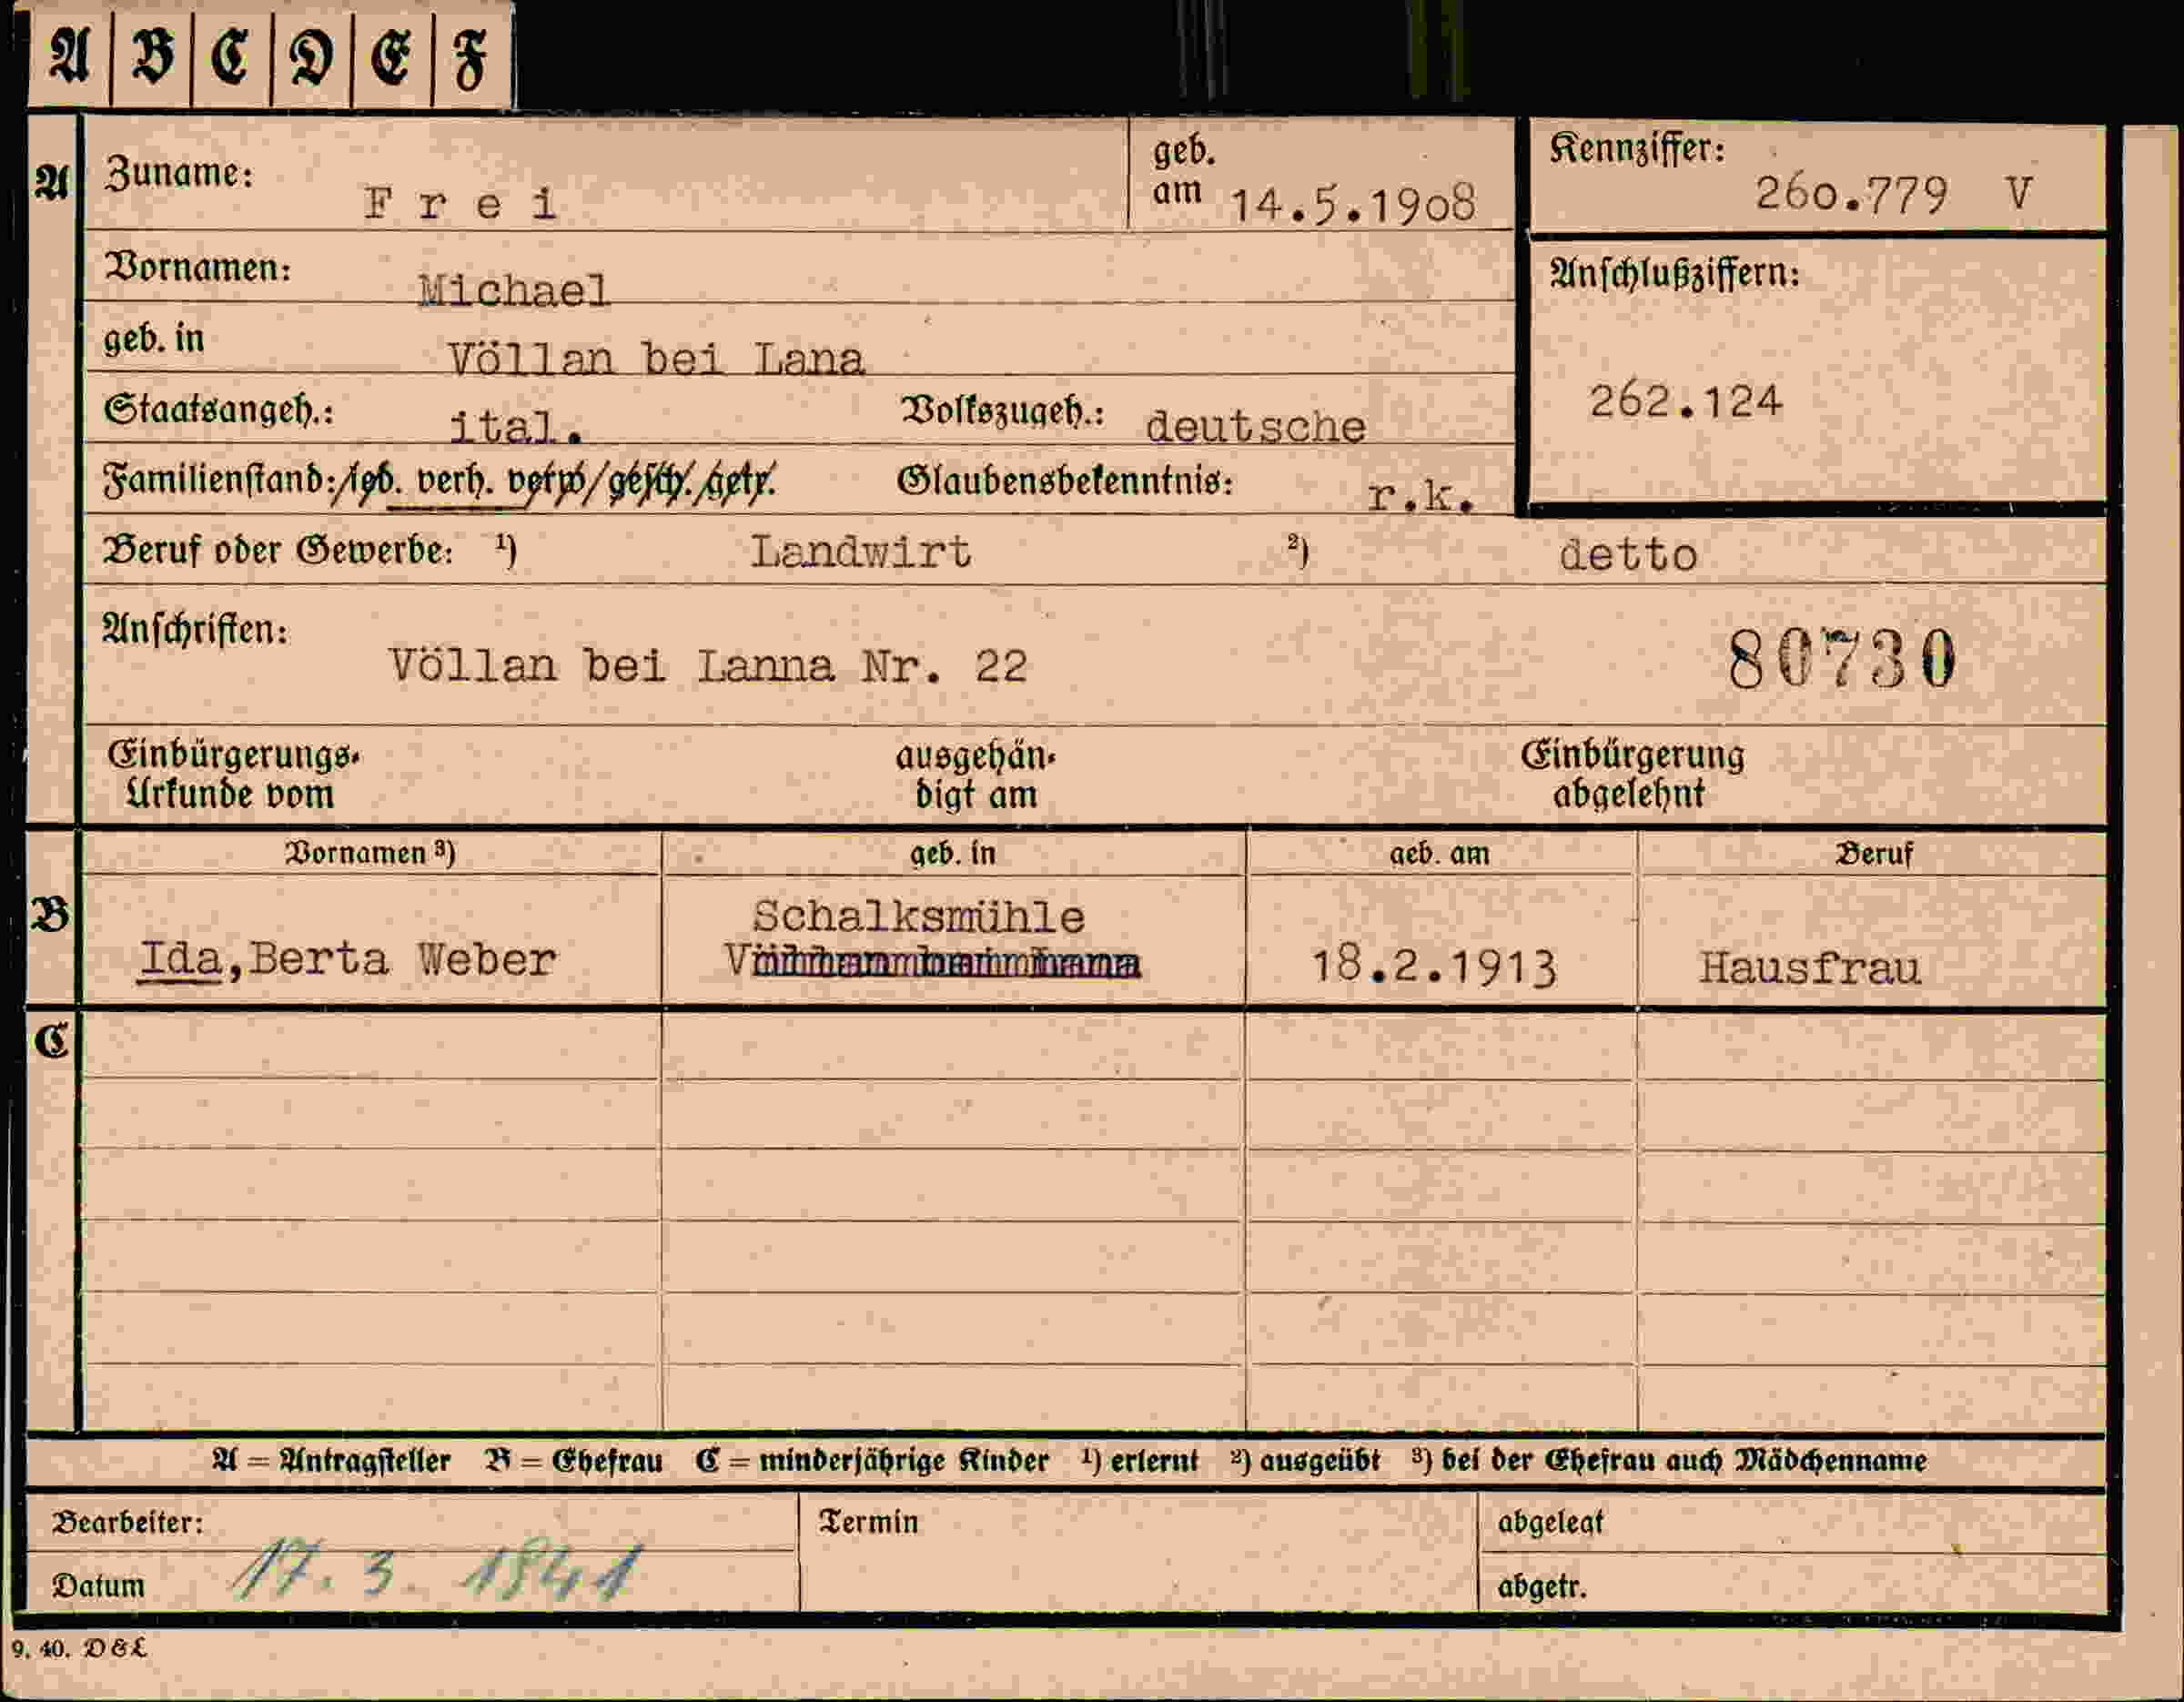 A B C D E F
A Zuname: Frei geb. am 14.5.1908 Kennziffer: 260.779 V
Vornamen: Michael Anschlußziffern:
geb. in Völlan bei Lana
262.124
Staatsangeh.: ital. Volkszugeh.: deutsche
Familienstand: led. verh. verw. gesch. getr. Glaubensbekenntnis: r.k.
Beruf oder Gewerbe: ¹) Landwirt ²) detto
Anschriften: Völlan bei Lanna Nr. 22 80730
Einbürgerungs- ausgehän- Einbürgerung
Urkunde vom digt am abgelehnt
Vornamen ³) geb. in geb. am Beruf
B Schalksmühle
Ida, Berta Weber 18.2.1913 Hausfrau
C
A = Antragsteller B = Ehefrau C = minderjährige Kinder ¹) erlernt ²) ausgeübt ³) bei der Ehefrau auch Mädchenname
Bearbeiter: Termin abgelegt
Datum 17. 3. 1941 abgetr.
9. 40. D&L